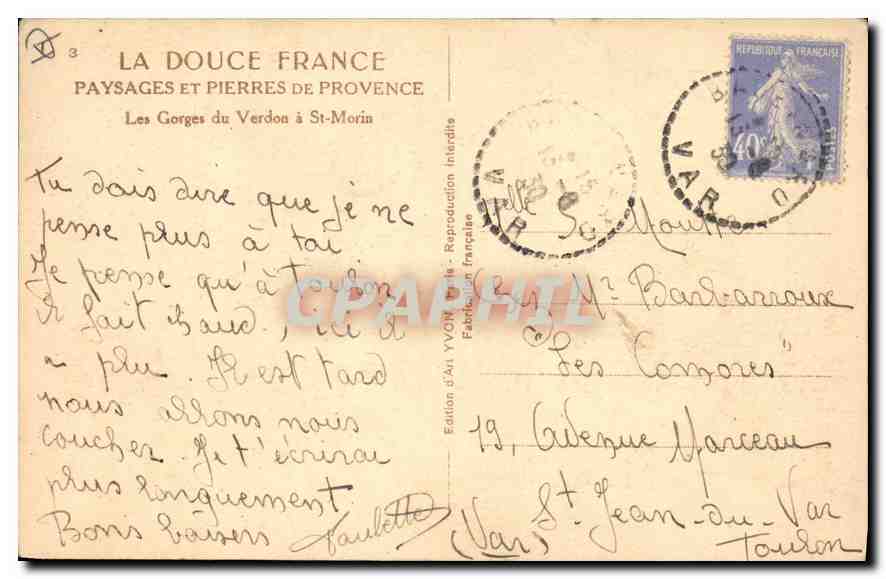 3
LA DOUCE FRANCE
PAYSAGES ET PIERRES DE PROVENCE
Les Gorges du Verdon à St-Morin
Tu dois dire que je ne
pense plus à toi
Je pense qu'à Toulon
Il fait chaud, ici il
a plu. Il est tard
nous allons nous
coucher. Je t'écrirai
plus longuement
Bons baisers Paulette
Edition d'Art YVON, Paris - Reproduction Interdite
Fabrication française
REPUBLIQUE FRANÇAISE
40c
POSTES
VAR
15
30
VAR
15
30
Melle S. Moutte
Chez Mr Barbarroux
"Les Comores"
19, Avenue Marceau
St Jean-du-Var
(Var) Toulon
CPAPHIL